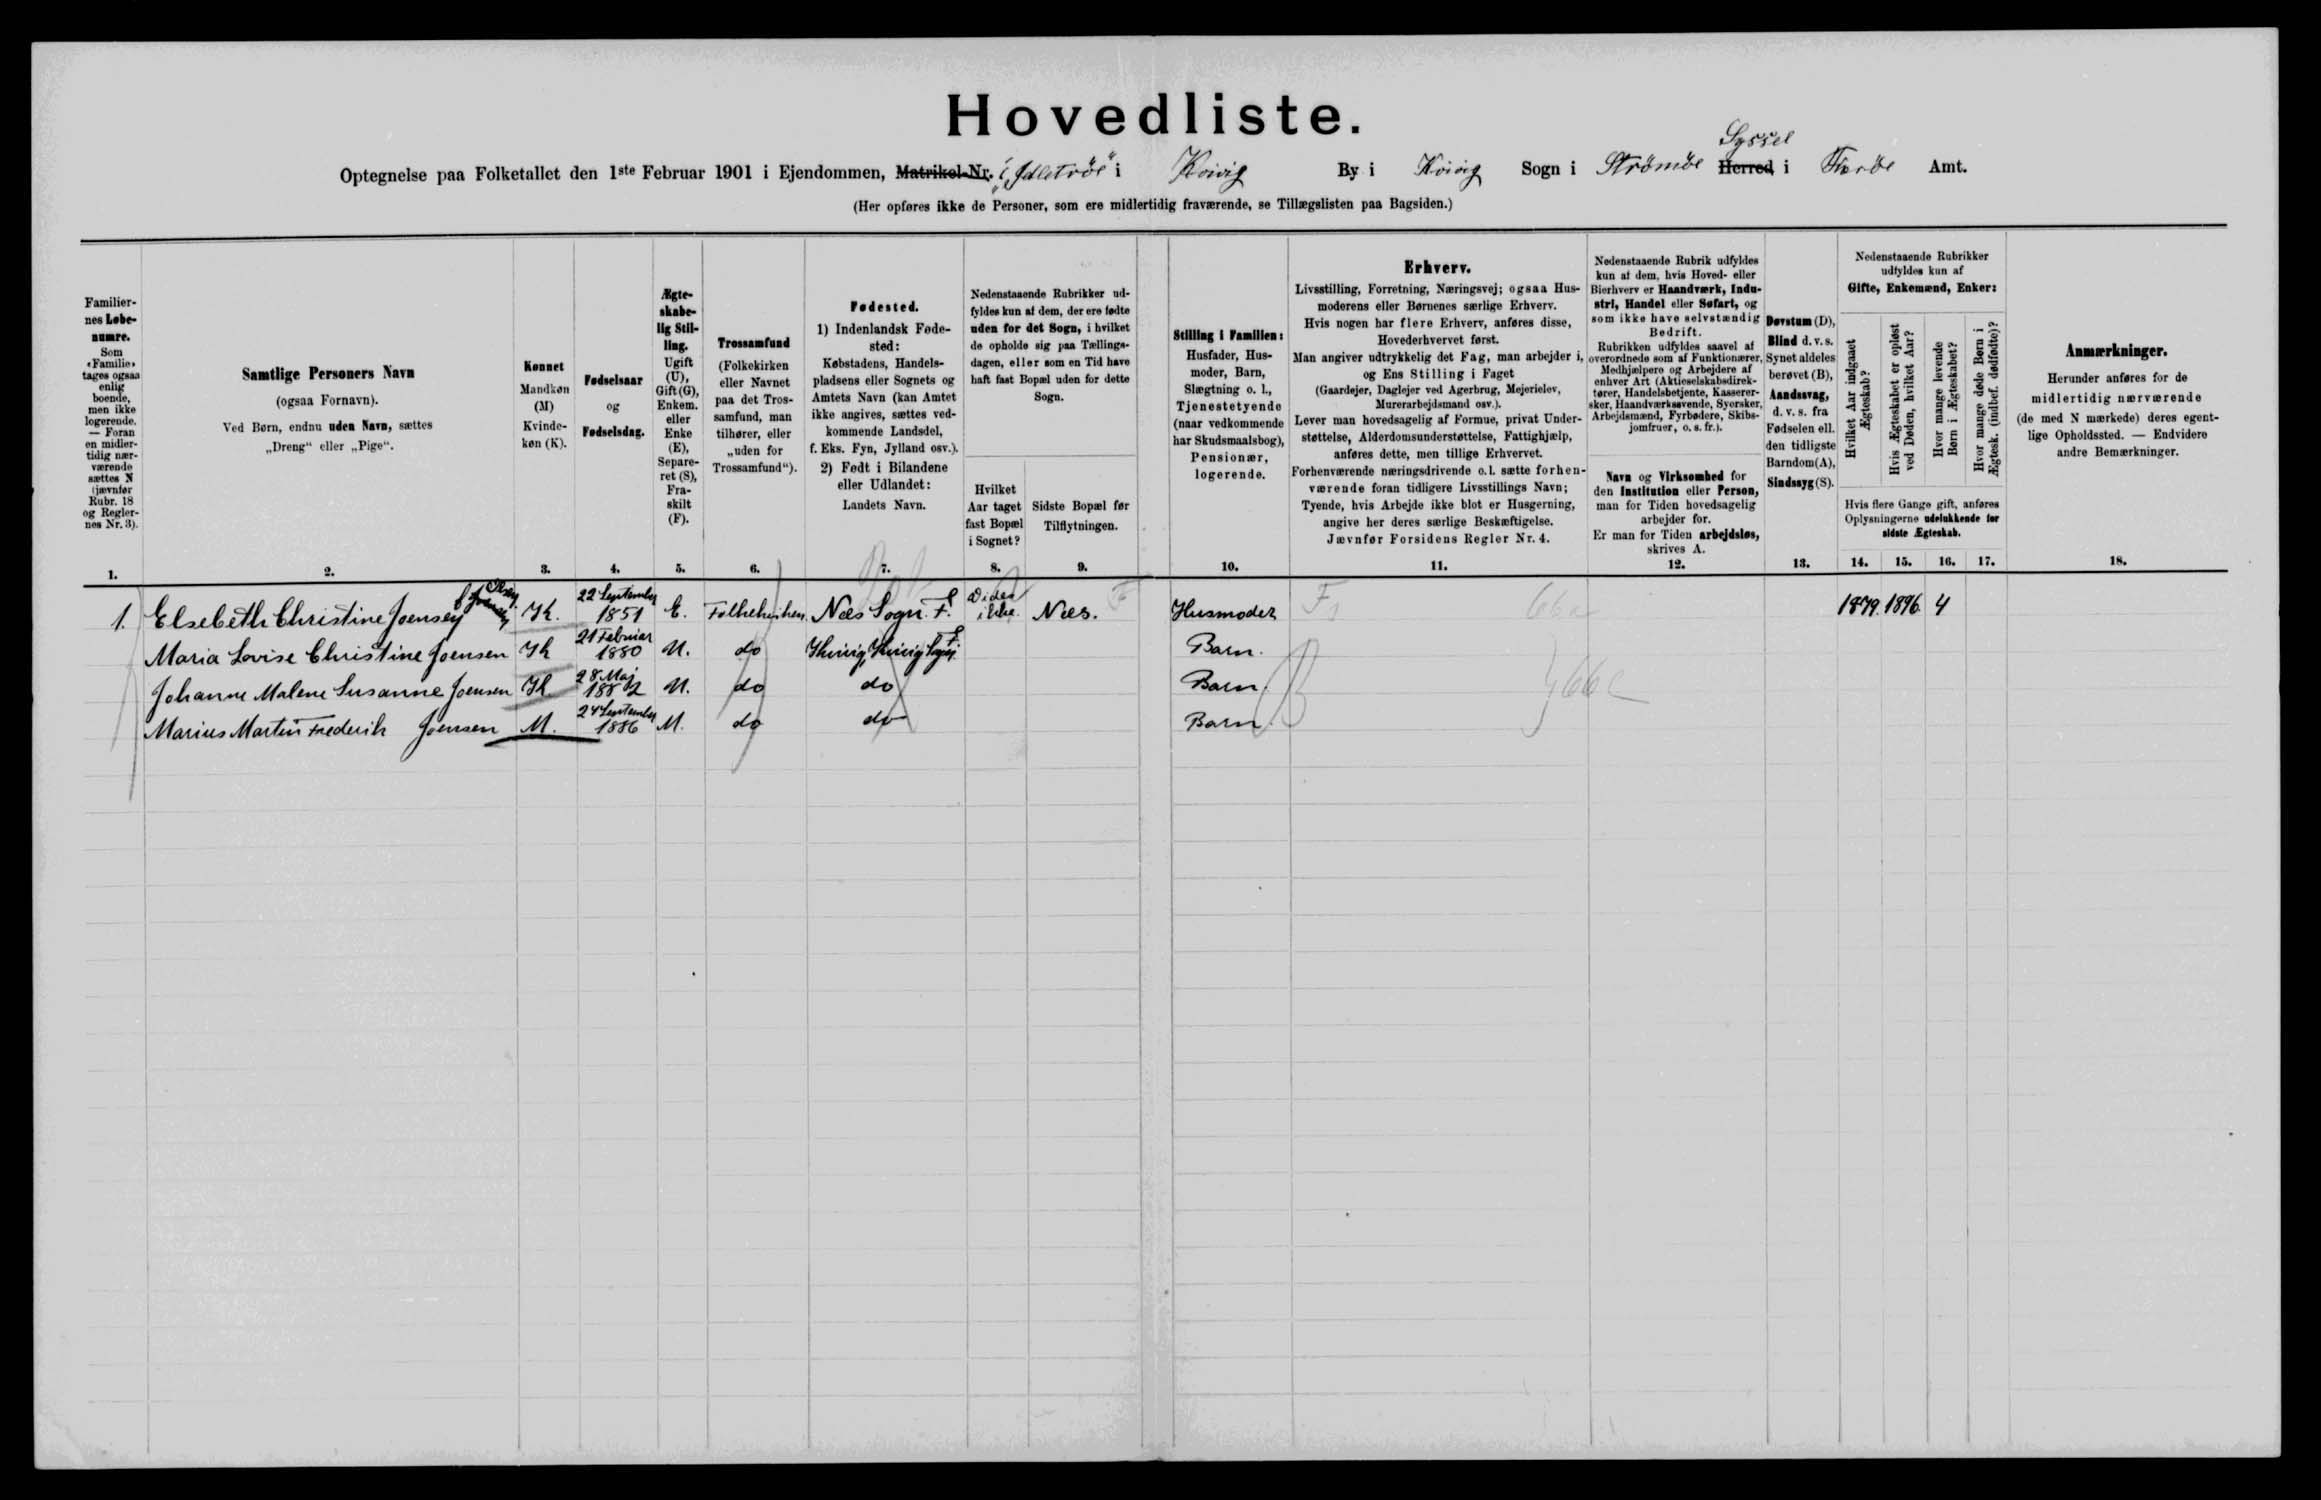 Hovedliste.
Syssel
Optegnelse paa Folketallet den 1ste Februar 1901 i Ejendommen, Matrikel-Nr. i Kvivig By i Kvivig Sogn i Strömöe Herred i Færöe Amt.
(Her opføres ikke de Personer, som ere midlertidig fraværende, se Tillægslisten paa Bagsiden.)
Familier-
nes Løbe-
numre.
Som
«Familie»
tages ogsaa
enlig
boende,
men ikke
logerende.
— Foran
en midler-
tidig nær-
værende
sættes N
(jævnfør
Rubr. 18
og Regler-
nes Nr. 3).
1.
Samtlige Personers Navn
(ogsaa Fornavn).
Ved Børn, endnu uden Navn, sættes
„Dreng“ eller „Pige“.
2.
Kønnet
Mandkøn
(M)
Kvinde-
køn (K).
3.
Fødselsaar
og
Fødselsdag.
4.
Ægte-
skabe-
lig Stil-
ling.
Ugift
(U),
Gift (G),
Enkem.
eller
Enke
(E),
Separe-
ret (S),
Fra-
skilt
(F).
5.
Trossamfund
(Folkekirken
eller Navnet
paa det Tros-
samfund, man
tilhører, eller
„uden for
Trossamfund“).
6.
Fødested.
1) Indenlandsk Føde-
sted:
Købstadens, Handels-
pladsens eller Sognets og
Amtets Navn (kan Amtet
ikke angives, sættes ved-
kommende Landsdel,
f. Eks. Fyn, Jylland osv.).
2) Født i Bilandene
eller Udlandet:
Landets Navn.
7.
Nedenstaaende Rubrikker ud-
fyldes kun af dem, der ere fødte
uden for det Sogn, i hvilket
de opholde sig paa Tællings-
dagen, eller som en Tid have
haft fast Bopæl uden for dette
Sogn.
Hvilket
Aar taget
fast Bopæl
i Sognet?
8.
Sidste Bopæl før
Tilflytningen.
9.
Stilling i Familien:
Husfader, Hus-
moder, Barn,
Slægtning o. l.,
Tjenestetyende
(naar vedkommende
har Skudsmaalsbog),
Pensionær,
logerende.
10.
Erhverv.
Livsstilling, Forretning, Næringsvej; ogsaa Hus-
moderens eller Børnenes særlige Erhverv.
Hvis nogen har flere Erhverv, anføres disse,
Hovederhvervet først.
Man angiver udtrykkelig det Fag, man arbejder i,
og Ens Stilling i Faget
(Gaardejer, Daglejer ved Agerbrug, Mejerielev,
Murerarbejdsmand osv.).
Lever man hovedsagelig af Formue, privat Under-
støttelse, Alderdomsunderstøttelse, Fattighjælp,
anføres dette, men tillige Erhvervet.
Forhenværende næringsdrivende o. l. sætte forhen-
værende foran tidligere Livsstillings Navn;
Tyende, hvis Arbejde ikke blot er Husgerning,
angive her deres særlige Beskæftigelse.
Jævnfør Forsidens Regler Nr. 4.
11.
Nedenstaaende Rubrik udfyldes
kun af dem, hvis Hoved- eller
Bierhverv er Haandværk, Indu-
stri, Handel eller Søfart, og
som ikke have selvstændig
Bedrift.
Rubrikken udfyldes saavel af
overordnede som af Funktionærer,
Medhjælpere og Arbejdere af
enhver Art (Aktieselskabsdirek-
tører, Handelsbetjente, Kasserer-
sker, Haandværkssvende, Syersker,
Arbejdsmænd, Fyrbødere, Skibs-
jomfruer, o. s. fr.).
Navn og Virksomhed for
den Institution eller Person,
man for Tiden hovedsagelig
arbejder for.
Er man for Tiden arbejdsløs,
skrives A.
12.
Døvstum (D),
Blind d. v. s.
Synet aldeles
berøvet (B),
Aandssvag,
d. v. s. fra
Fødselen ell.
den tidligste
Barndom (A),
Sindssyg (S).
13.
Nedenstaaende Rubrikker
udfyldes kun af
Gifte, Enkemænd, Enker:
Hvilket Aar indgaaet
Ægteskab?
Hvis Ægteskabet er opløst
ved Døden, hvilket Aar?
Hvor mange levende
Børn i Ægteskabet?
Hvor mange døde Børn i
Ægtesk. (indbef. dødfødte)?
Hvis flere Gange gift, anføres
Oplysningerne udelukkende for
sidste Ægteskab.
14. 15. 16. 17.
Anmærkninger.
Herunder anføres for de
midlertidig nærværende
(de med N mærkede) deres egent-
lige Opholdssted. — Endvidere
andre Bemærkninger.
18.
1. Elsebeth Christine Joensen K. 22 September 1851 E. Folkekirken. Næs Sogn. F. Vides ikke Næs. F Husmoder F 66a 1879. 1896. 4
Maria Lovise Christine Joensen K 21 Februar 1880 U. do Kvivig, Kvivig Sogn F. Barn.
Johanne Malene Susanne Joensen K 28 Maj 1882 U. do do Barn. B 66c
Marius Martin Frederik Joensen M. 24 September 1886 M. do do Barn.